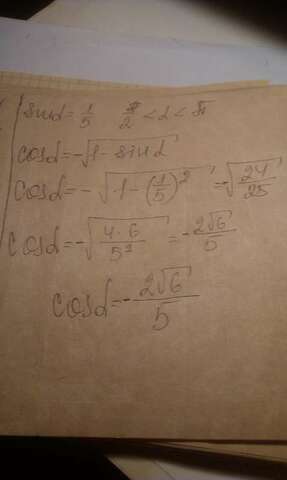 sinα = 1/5 π/2 < α < π
cosα = -√(1 - sin α)
cosα = - √(1 - (1/5)²) = -√(24/25)
cosα = -√(4·6/5²) = -2√6/5
cosα = -2√6/5